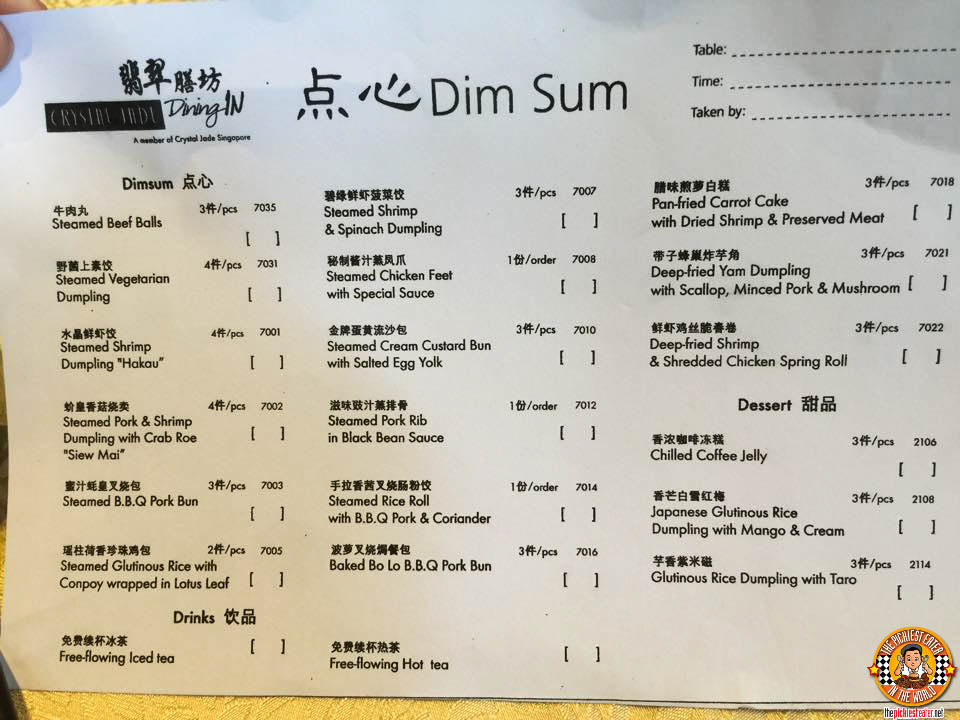 翡翠膳坊
CRYSTAL JADE Dining IN
A member of Crystal Jade Singapore
点心 Dim Sum
Table:
Time:
Taken by:
Dimsum 点心
牛肉丸 3件/pcs 7035
Steamed Beef Balls
[ ]
野菌上素饺 4件/pcs 7031
Steamed Vegetarian
Dumpling [ ]
水晶鲜虾饺 4件/pcs 7001
Steamed Shrimp
Dumpling "Hakau" [ ]
蚧皇香菇烧卖 4件/pcs 7002
Steamed Pork & Shrimp
Dumpling with Crab Roe [ ]
"Siew Mai"
蜜汁蚝皇叉烧包 3件/pcs 7003
Steamed B.B.Q Pork Bun
[ ]
瑶柱荷香珍珠鸡包 2件/pcs 7005
Steamed Glutinous Rice with
Conpoy wrapped in Lotus Leaf [ ]
Drinks 饮品
免费续杯冰茶 [ ]
Free-flowing Iced tea
碧绿鲜虾菠菜饺 3件/pcs 7007
Steamed Shrimp
& Spinach Dumpling [ ]
秘制酱汁蒸凤爪 1份/order 7008
Steamed Chicken Feet
with Special Sauce [ ]
金牌蛋黄流沙包 3件/pcs 7010
Steamed Cream Custard Bun
with Salted Egg Yolk [ ]
滋味豉汁蒸排骨 1份/order 7012
Steamed Pork Rib
in Black Bean Sauce [ ]
手拉香茜叉烧肠粉饺 1份/order 7014
Steamed Rice Roll
with B.B.Q Pork & Coriander [ ]
菠萝叉烧焗餐包 3件/pcs 7016
Baked Bo Lo B.B.Q Pork Bun
[ ]
免费续杯热茶 [ ]
Free-flowing Hot tea
腊味煎萝白糕 3件/pcs 7018
Pan-fried Carrot Cake
with Dried Shrimp & Preserved Meat [ ]
带子蜂巢炸芋角 3件/pcs 7021
Deep-fried Yam Dumpling
with Scallop, Minced Pork & Mushroom [ ]
鲜虾鸡丝脆春卷 3件/pcs 7022
Deep-fried Shrimp
& Shredded Chicken Spring Roll [ ]
Dessert 甜品
香浓咖啡冻糕 3件/pcs 2106
Chilled Coffee Jelly
[ ]
香芒白雪红梅 3件/pcs 2108
Japanese Glutinous Rice
Dumpling with Mango & Cream [ ]
芋香紫米磁 3件/pcs 2114
Glutinous Rice Dumpling with Taro
[ ]
THE PICKIEST EATER
IN THE WORLD
thepickiesteater.net